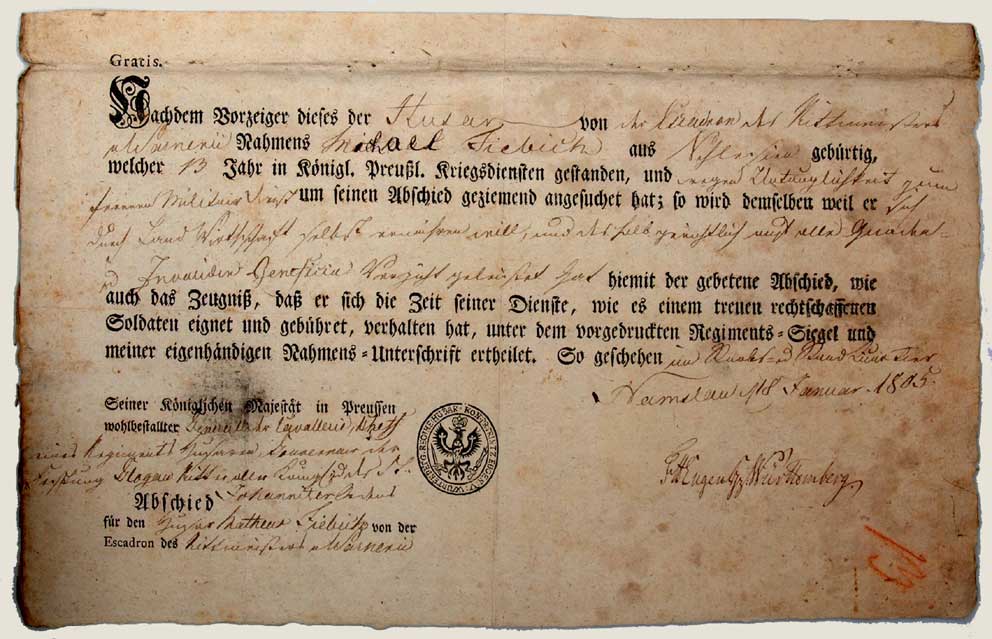 Gratis.
Nachdem Vorzeiger dieses der Husar von der Escadron des Rittmeisters
v Warnerii Nahmens Michael Fiebich aus Schlesien gebürtig,
welcher 13 Jahr in Königl. Preußl. Kriegsdiensten gestanden, und wegen Untauglichkeit zum
ferneren Militair Dienst um seinen Abschied geziemend angesuchet hat; so wird demselben weil er sich
durch Land Wirthschaft selbst ernaehren will, und deshalb gerichtlich auf alle Gnaden-
Invaliden Beneficia Verzicht geleistet hat hiemit der gebetene Abschied, wie
auch das Zeugniß, daß er sich die Zeit seiner Dienste, wie es einem treuen rechtschaffenen
Soldaten eignet und gebühret, verhalten hat, unter dem vorgedruckten Regiments-Siegel und
meiner eigenhändigen Nahmens-Unterschrift ertheilet. So geschehen im Staabs- Stand Quartier
Namslau 18 Januar 1805.
Seiner Königlichen Majestät in Preussen
wohlbestallter General der Cavallerie, Chef
eines Regiments Husaren Gouverneur der
Festung Glogau Ritter allen
Johanniter Ordens
Abschied
für den Husar Matheus Fiebich von der
Escadron des Rittmeisters v Warnerii
Eugen Würthemberg